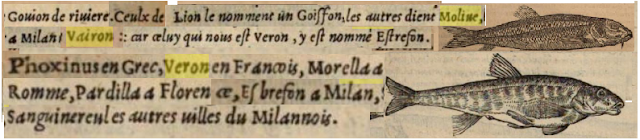 Gouion de riuiere. Ceulx de Lion le nomment un Goiffon, les autres dient Moliue,
a Milan Vairon : car celuy qui nous est Veron, y est nommé Estrefon.
Phoxinus en Grec, Veron en Francois, Morella a
Romme, Pardilla a Floren ce, Esbrefon a Milan,
Sanguinereul es autres uilles du Milannois.